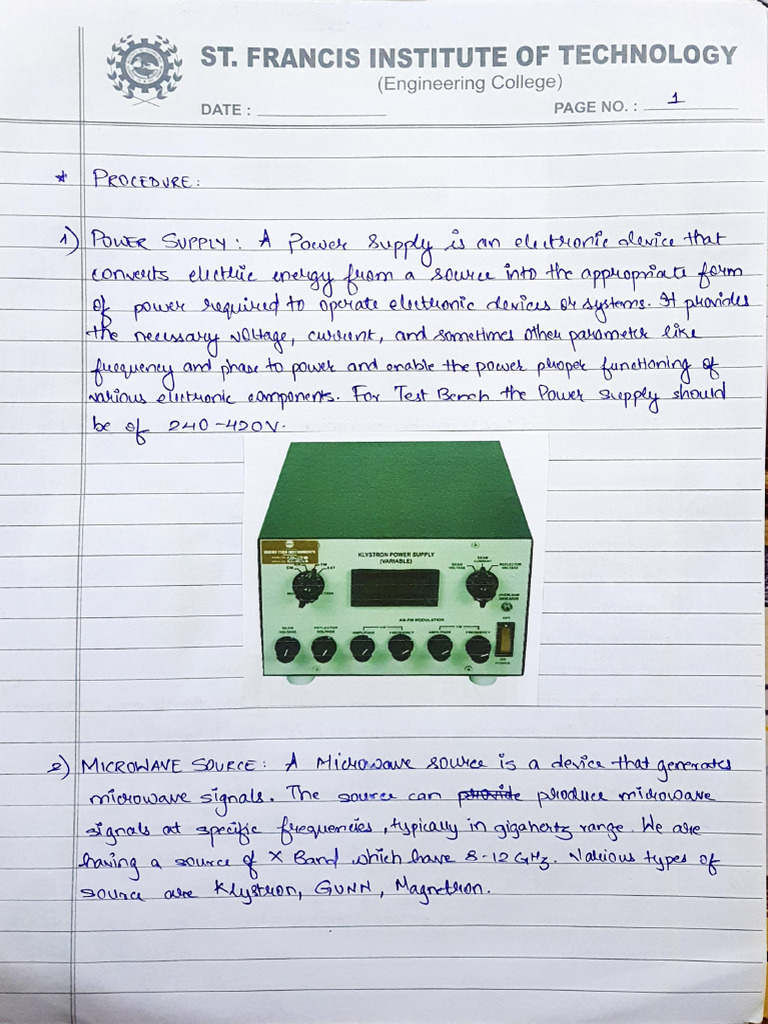 ST. FRANCIS INSTITUTE OF TECHNOLOGY
(Engineering College)
DATE :
PAGE NO. : 1
* PROCEDURE:
1) POWER SUPPLY: A Power Supply is an electronic device that
converts electric energy from a source into the appropriate form
of power required to operate electronic devices or systems. It provides
the necessary voltage, current, and sometimes other parameter like
frequency and phase to power and enable the power proper functioning of
various electronic components. For Test Bench the Power Supply should
be of 240-420V.
KLYSTRON POWER SUPPLY
(VARIABLE)
BEAM CURRENT
BEAM VOLTAGE
REFLECTOR VOLTAGE
OVERLOAD INDICATOR
AM-FM MODULATION
OFF
BEAM VOLTAGE
REFLECTOR VOLTAGE
AMPLITUDE
FREQUENCY
AMPLITUDE
FREQUENCY
ON
POWER
2) MICROWAVE SOURCE: A Microwave source is a device that generates
microwave signals. The source can provide produce microwave
signals at specific frequencies, typically in gigahertz range. We are
having a source of X Band which have 8-12 GHz. Various types of
source are Klystron, GUNN, Magnetron.